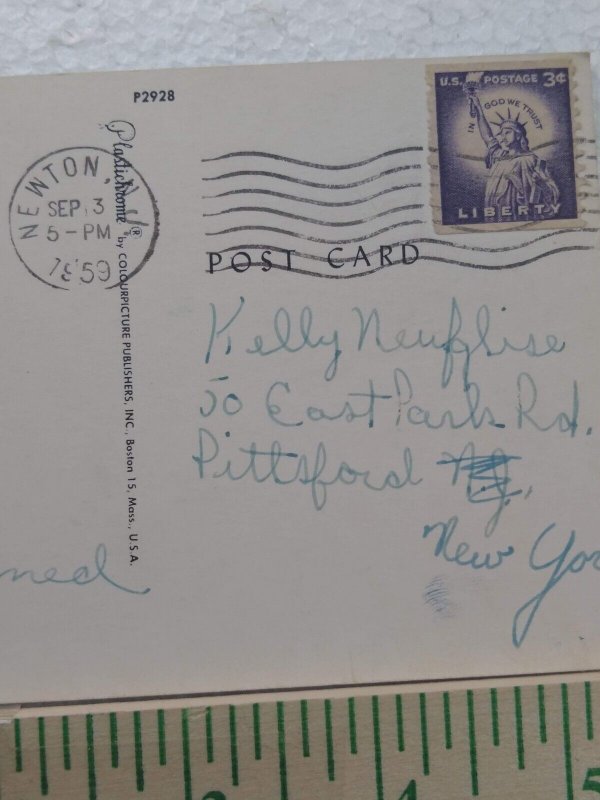 P2928
Plastichrome® by COLOURPICTURE PUBLISHERS, INC., Boston 15, Mass., U.S.A.
NEWTON,
SEP 3
5 - PM
1959
U.S. POSTAGE 3¢
IN GOD WE TRUST
LIBERTY
POST CARD
Kelly Neufglise
50 East Park Rd.
Pittsford N.J.,
New Yor
med
3
4
5